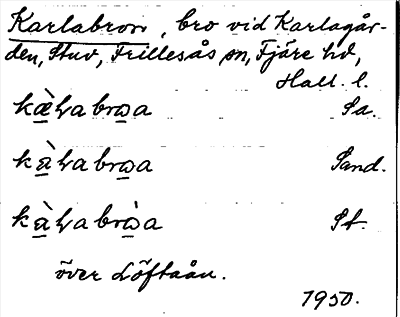 Karlabron, bro vid Karlagår-
den, Stuv, Frillesås sn, Fjäre hd,
Hall. l.
kæ̀ɬabrɷa Sa.
kàɬabrɷa Sand.
kàɬabrɷ̀a St.
över Löftaån.
1950.